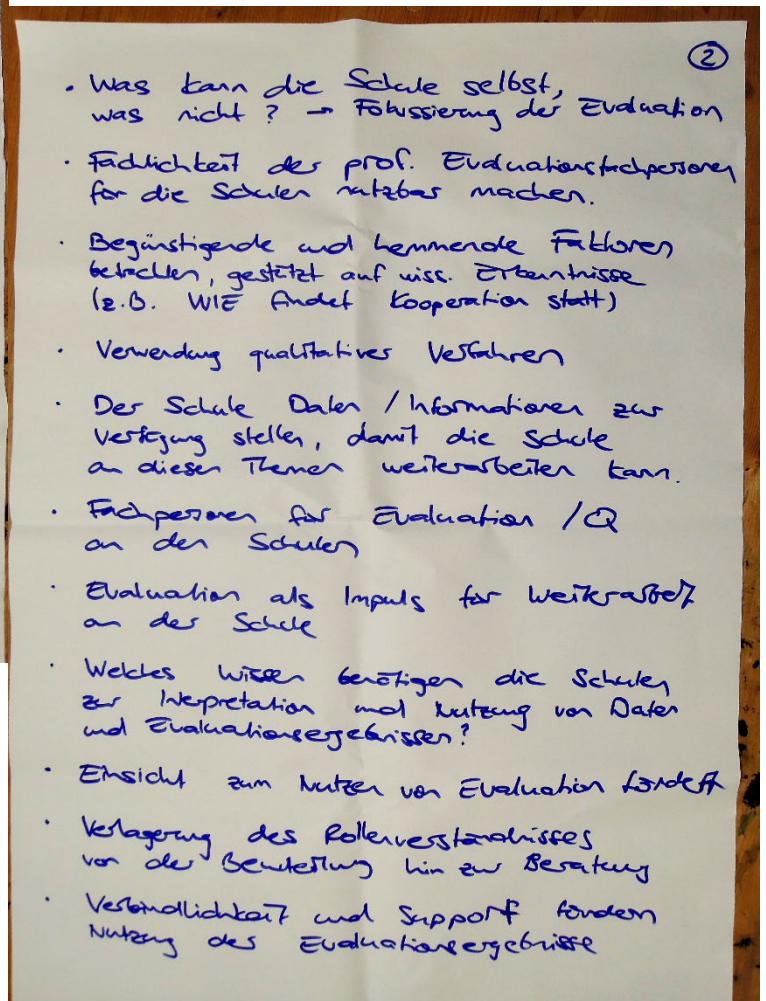 ②
• Was kann die Schule selbst,
was nicht? → Fokussierung der Evaluation
• Fachlichkeit der prof. Evaluationsfachpersonen
für die Schulen nutzbar machen.
• Begünstigende und hemmende Faktoren
betrachten, gestützt auf wiss. Erkenntnisse
(z.B. WIE findet Kooperation statt)
• Verwendung qualitativer Verfahren
• Der Schule Daten / Informationen zur
Verfügung stellen, damit die Schule
an diesen Themen weiterarbeiten kann.
• Fachpersonen für Evaluation / Q
an den Schulen
• Evaluation als Impuls für Weiterarbeit
an der Schule
• Welches Wissen benötigen die Schulen
zur Interpretation und Nutzung von Daten
und Evaluationsergebnissen?
• Einsicht zum Nutzen von Evaluation fördern
• Verlagerung des Rollenverständnisses
von der Beurteilung hin zur Beratung
• Verbindlichkeit und Support fördern
Nutzung der Evaluationsergebnisse